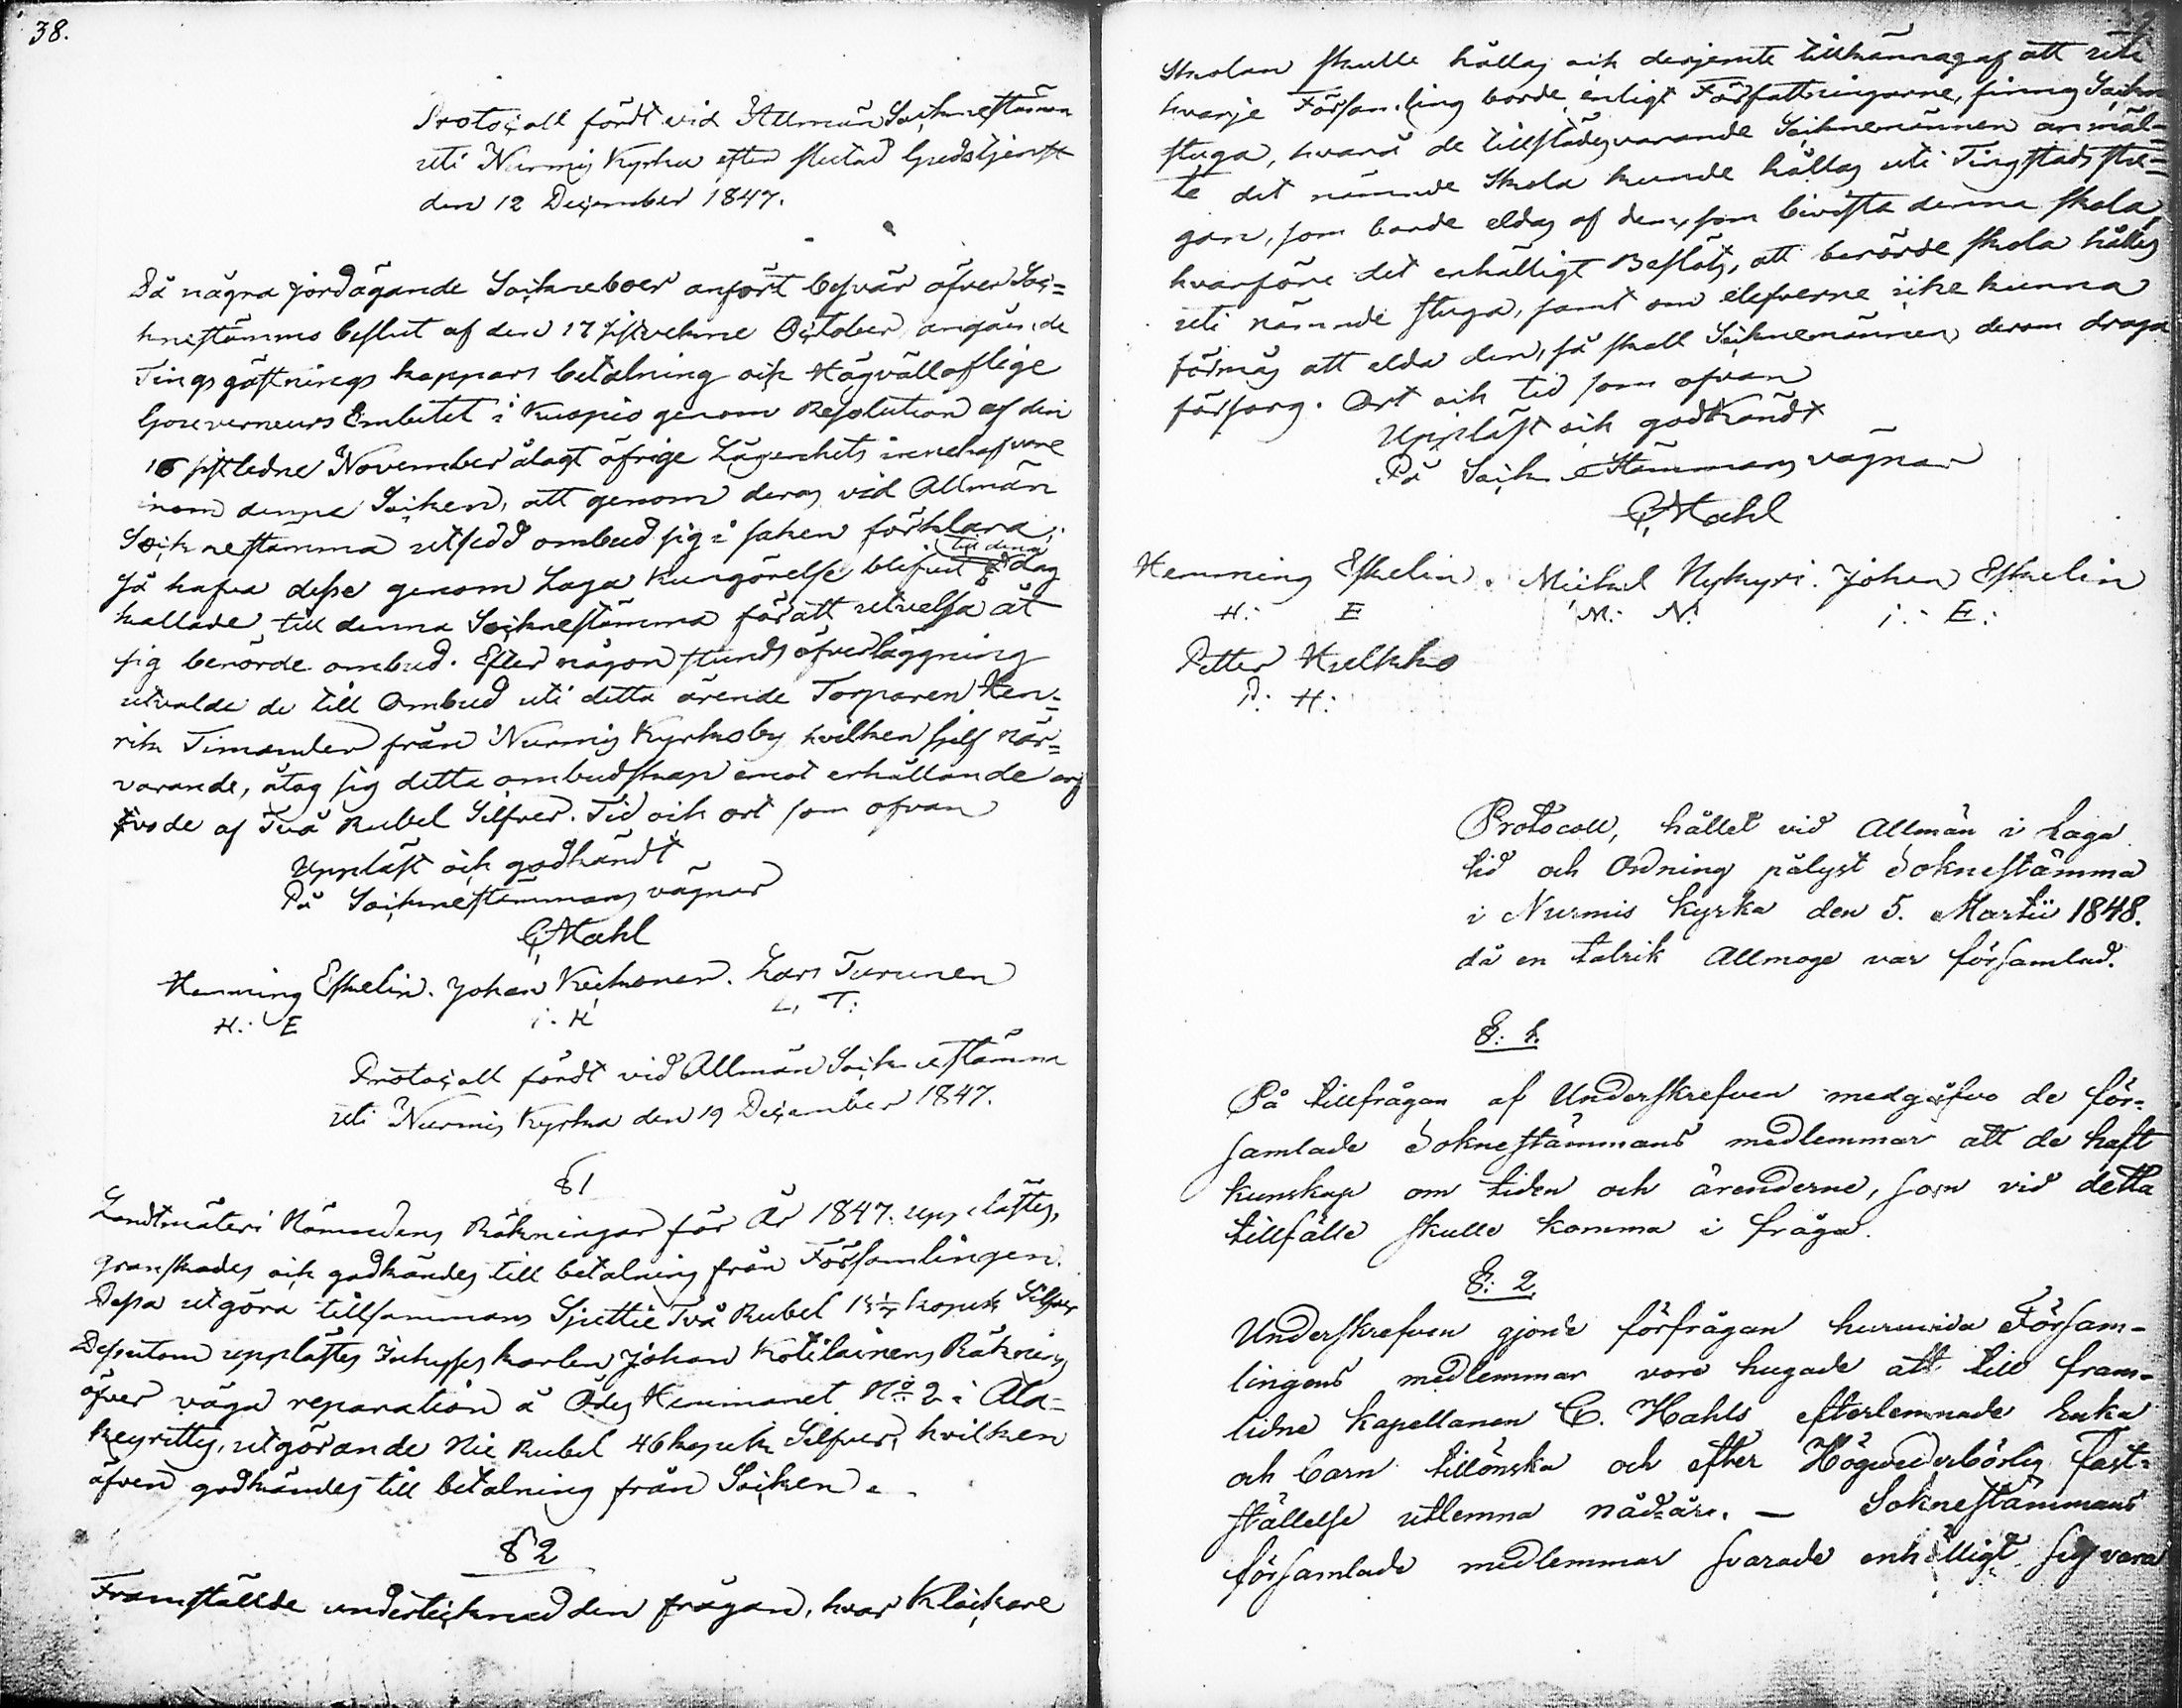 38.
Protocoll fördt vid Allmän Socknestämma
uti Nurmis Kyrka efter slutad Gudstjenst
den 12 December 1847.
Då några jordägande Sockneboer anfört besvär öfver Soc=
knestämmo beslut af den 17 sistvekne October angående
Tingsgästnings kappars betalning och Högvälloflige
Gouverneurs Embetet i Kuopio genom Resolution af den
16 sistledne November ålagt öfrige Lägenhets innehafvare
inom denna Socken, att genom deras vid Allmän
Socknestämma utsedd ombud sig i saken förklara;
så hafva desse genom Laga Kungörelse blifvit till denna dag
kallade till denna Socknestämma för att utvelja åt
sig berörde ombud. Efter någon stunds öfverläggning
utvalde de till Ombud uti detta ärende Torparen Hen=
rik Timander från Nurmis Kyrkoby hvilken sjelf när=
varande, åtog sig detta ombudskap emot erhållande arf
vode af Två Rubel Silfver. Tid och ort som ofvan
Uppläst och godkändt
På Socknestämmans vägnar
C Hahl
Henning Eskelin. Johan Keckonen. Lars Turunen
H: E   i. K   L, T:
Protocoll fördt vid Allmän Socknestämma
uti Nurmis Kyrka den 19 December 1847.
§ 1
Landtmäteri Nämndens Räkningar för År 1847. upplästes,
granskades och godkändes till betalning från Församlingen.
Dessa utgöra tillsammans Sjuttie Två Rubel kopek Silfver
Dessutom upplästes Inhysses karlen Johan Kotilainens Räkning
öfver väga reparation å Ödes Hemmanet No 2 i Ala=
keyrittys, utgörande Nie Rubel 46 kopek Silfver, hvilken
äfven godkändes till betalning från Socken.
§ 2
Framställde undertecknad den frågan, hvar Klockare
Skolan skulle hållas och derjemte tillkännagaf att uti
hvarje Församling borde enligt Författningarne, finnas Sockne
stuga, hvarå de tillstädesvarande Socknemännen anmäl=
te det nämnde Skola kunde hållas uti Tingstads stu=
gan, som borde eldas af dem, som bivista denna skola,
hvarföre det enhälligt Beslöts, att berörde skola hålles
uti nämnde stuga, samt om elefverne icke kunna
förmås att elda den, så skall Socknemännen derom draga
försorg. Ort och tid som ofvan
Uppläst och godkändt
På Sockne Stämmans vägnar
C Hahl
Henning Eskelin. Mickel Nykyri. Johan Eskelin
H: E   M: N:   i: E:
Petter Hulkko
P: H:
Protocoll, hållet vid Allmän i Laga
tid och Ordning pålyst Soknestämma
i Nurmis Kyrka den 5. Martii 1848.
då en talrik Allmoge var församlad.
§: 1.
På tillfrågan af Underskrefven medgåfvo de för=
samlade Soknestämmans medlemmar att de haft
kunskap om tiden och ärenderne, som vid detta
tillfälle skulle komma i fråga.
§: 2.
Underskrefven gjorde förfrågan huruvida Försam-
lingens medlemmar vore hugade att till fram-
lidne Kapellanen C. Hahls efterlemnade Enka
och barn tillönska och efter Högvederbörlig Fast=
ställelse utlemna nådår. — Soknestämmans
församlade medlemmar svarade enhälligt sig vara